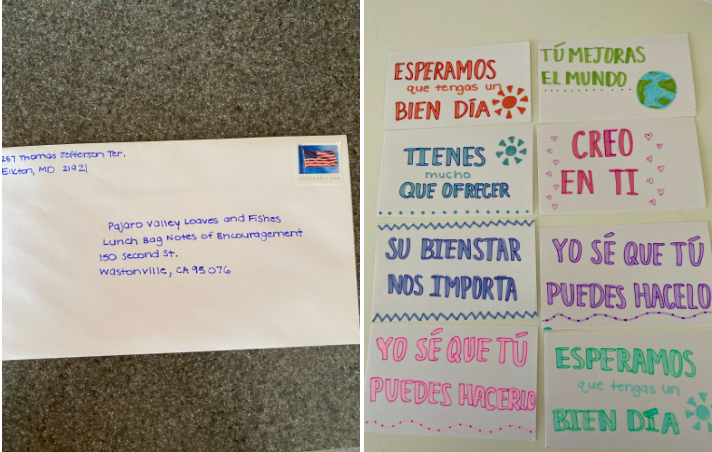 257 Thomas Jefferson Ter.
Elkton, MD 21921
Pajaro Valley Loaves and Fishes
Lunch Bag Notes of Encouragement
150 Second St.
Wastonville, CA 95076
ESPERAMOS
que tengas un
BIEN DÍA
TÚ MEJORAS
EL MUNDO
TIENES
mucho
QUE OFRECER
CREO
EN TI
SU BIENSTAR
NOS IMPORTA
YO SÉ QUE TÚ
PUEDES HACELO
YO SÉ QUE TÚ
PUEDES HACERLO
ESPERAMOS
que tengas un
BIEN DÍA